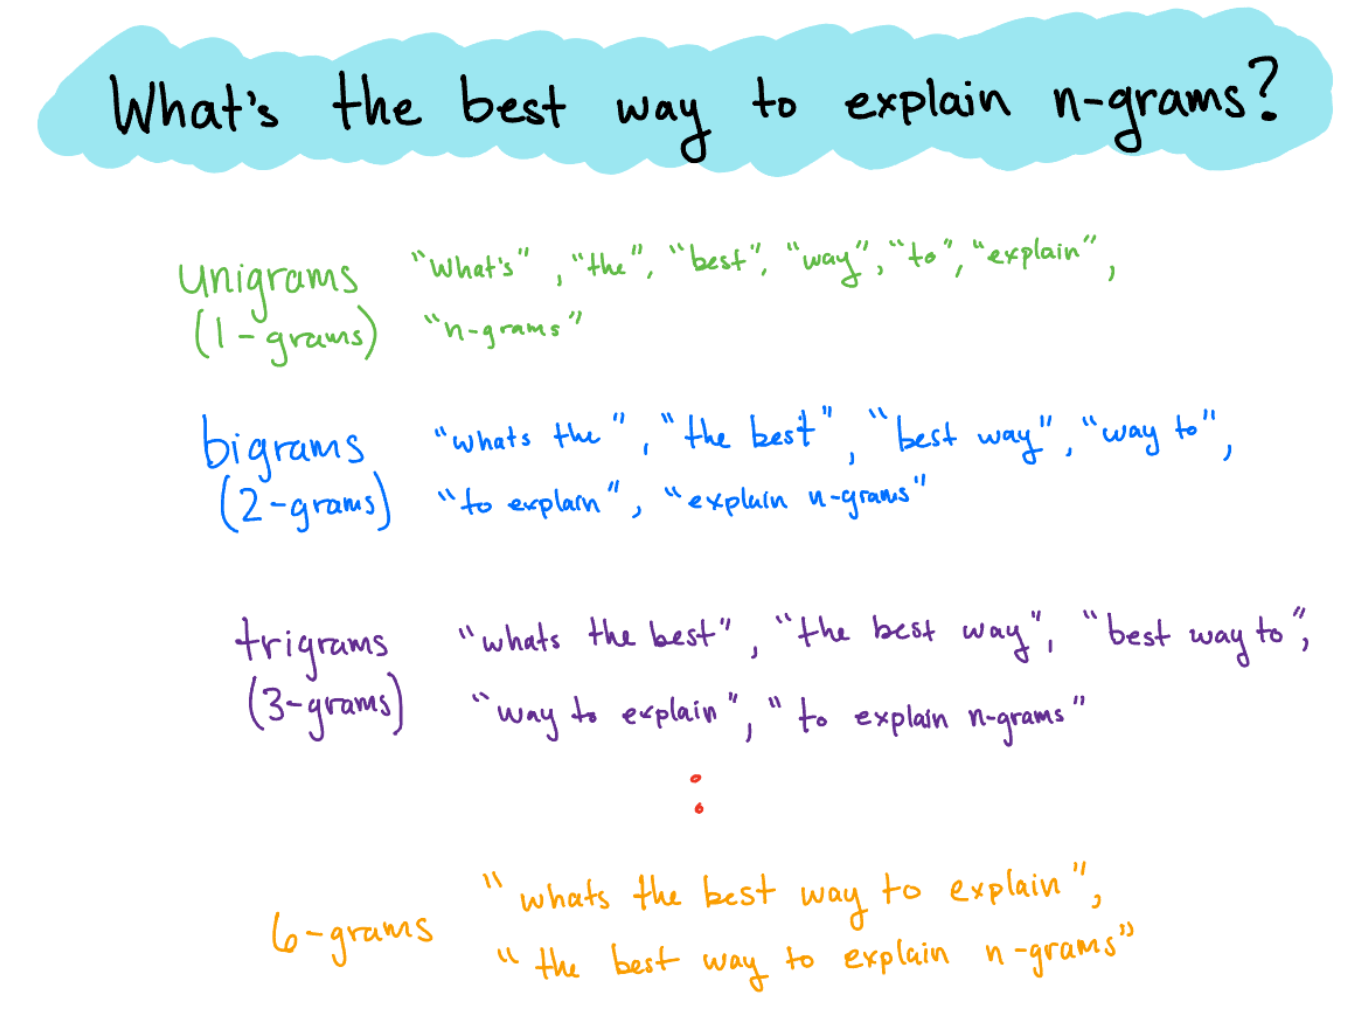 What's the best way to explain n-grams?
unigrams "What's", "the", "best", "way", "to", "explain",
(1-grams) "n-grams"
bigrams "whats the", "the best", "best way", "way to",
(2-grams) "to explain", "explain n-grams"
trigrams "whats the best", "the best way", "best way to",
(3-grams) "way to explain", "to explain n-grams"
:
6-grams "whats the best way to explain",
"the best way to explain n-grams"